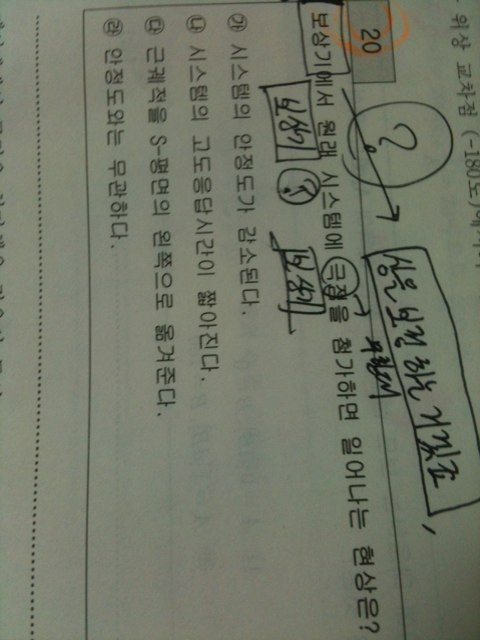 위상 교차점 (-180도)에서
20
?
상을 보정 하는 기기
보상기에서 원래 시스템에 극점을 첨가하면 일어나는 현상은?
보상기 ?
보상기
㉮ 시스템의 안정도가 감소된다.
㉯ 시스템의 고도응답시간이 짧아진다.
㉰ 근궤적을 S-평면의 왼쪽으로 옮겨준다.
㉱ 안정도와는 무관하다.